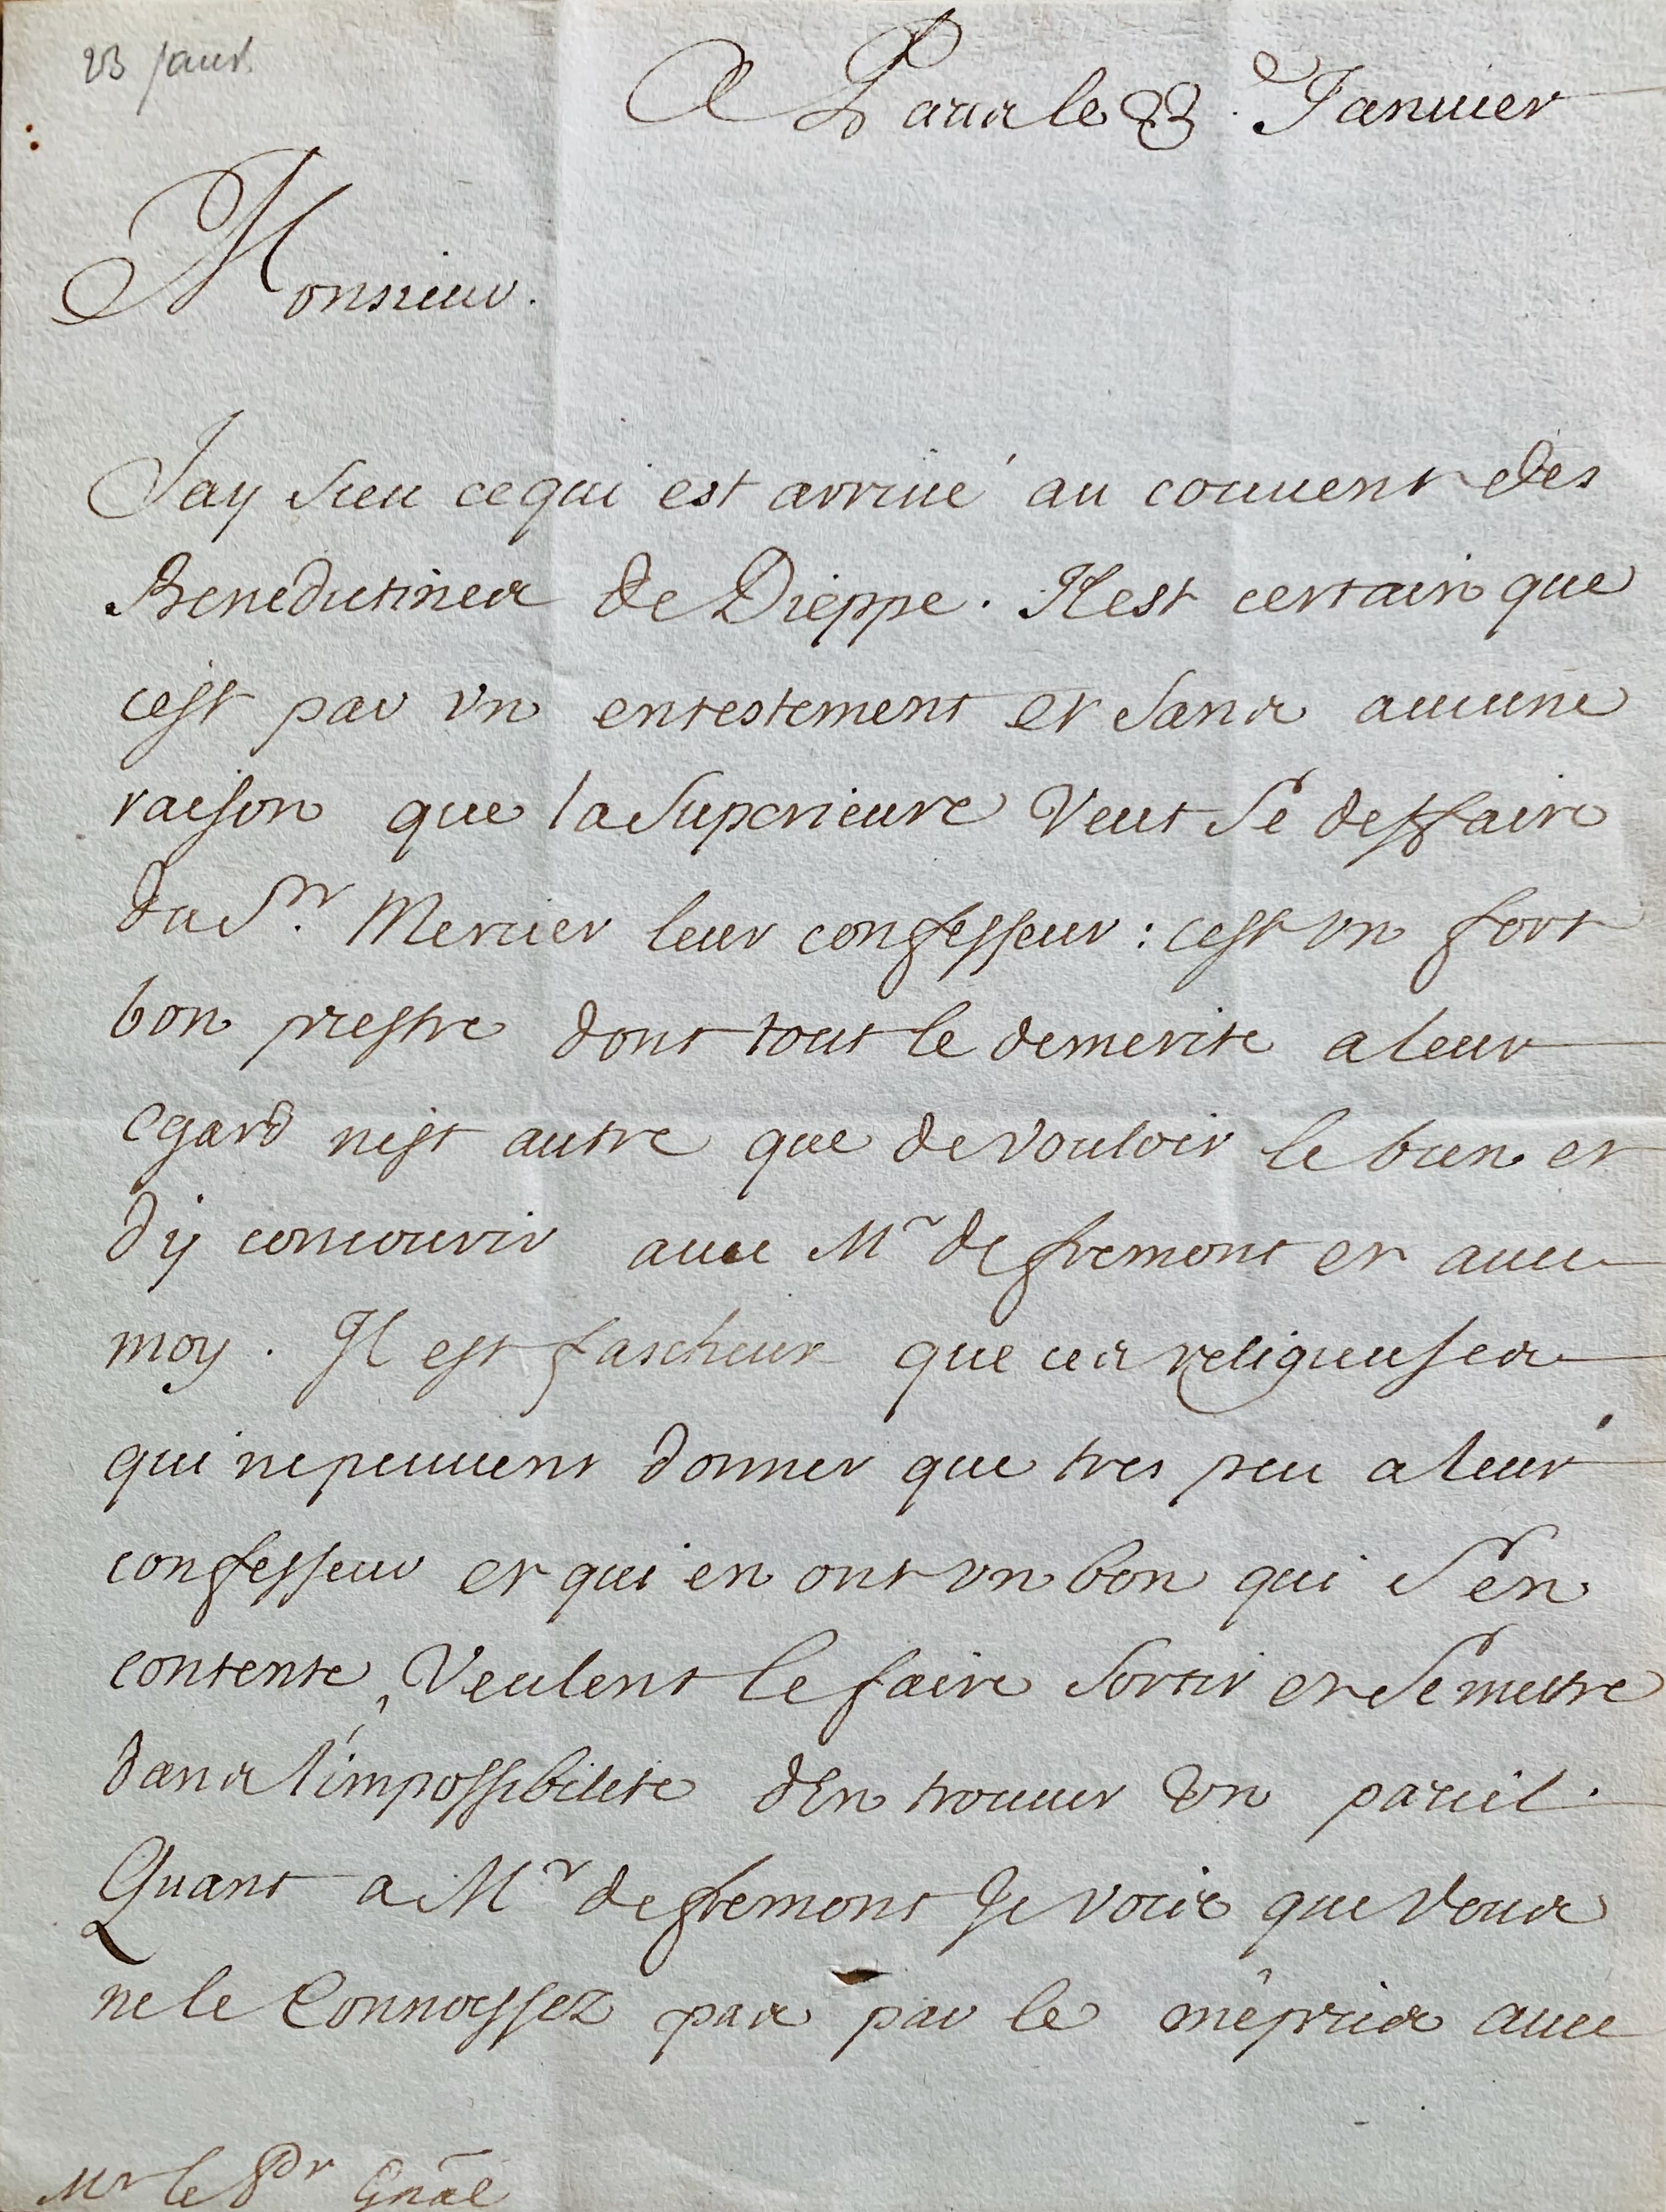 23 janv.
A Paris le 23. Januier
Monsieur.
Jay sceu ce qui est arriué au couuent des
Benedictines de Dieppe. Il est certain que
cest par vn entestement et sans aucune
raison que la superieure veut se deffaire
du Sr. Mercier leur confesseur : cest vn fort
bon prestre dont tout le demerite a leur
egard nest autre que de vouloir le bien et
dy concourir auec Mr de fremont et auec
moy. Il est fascheux que ces religieuses
qui ne peuuent donner que tres peu a leur
confesseur et qui en ont vn bon qui s'en
contente, veulent le faire sortir et se mettre
dans l'impossibilité d'En trouuer vn pareil.
Quant a Mr de fremont Je vois que vous
ne le Connoissez pas par le mêpris auec
Mr le Pr Gnâl